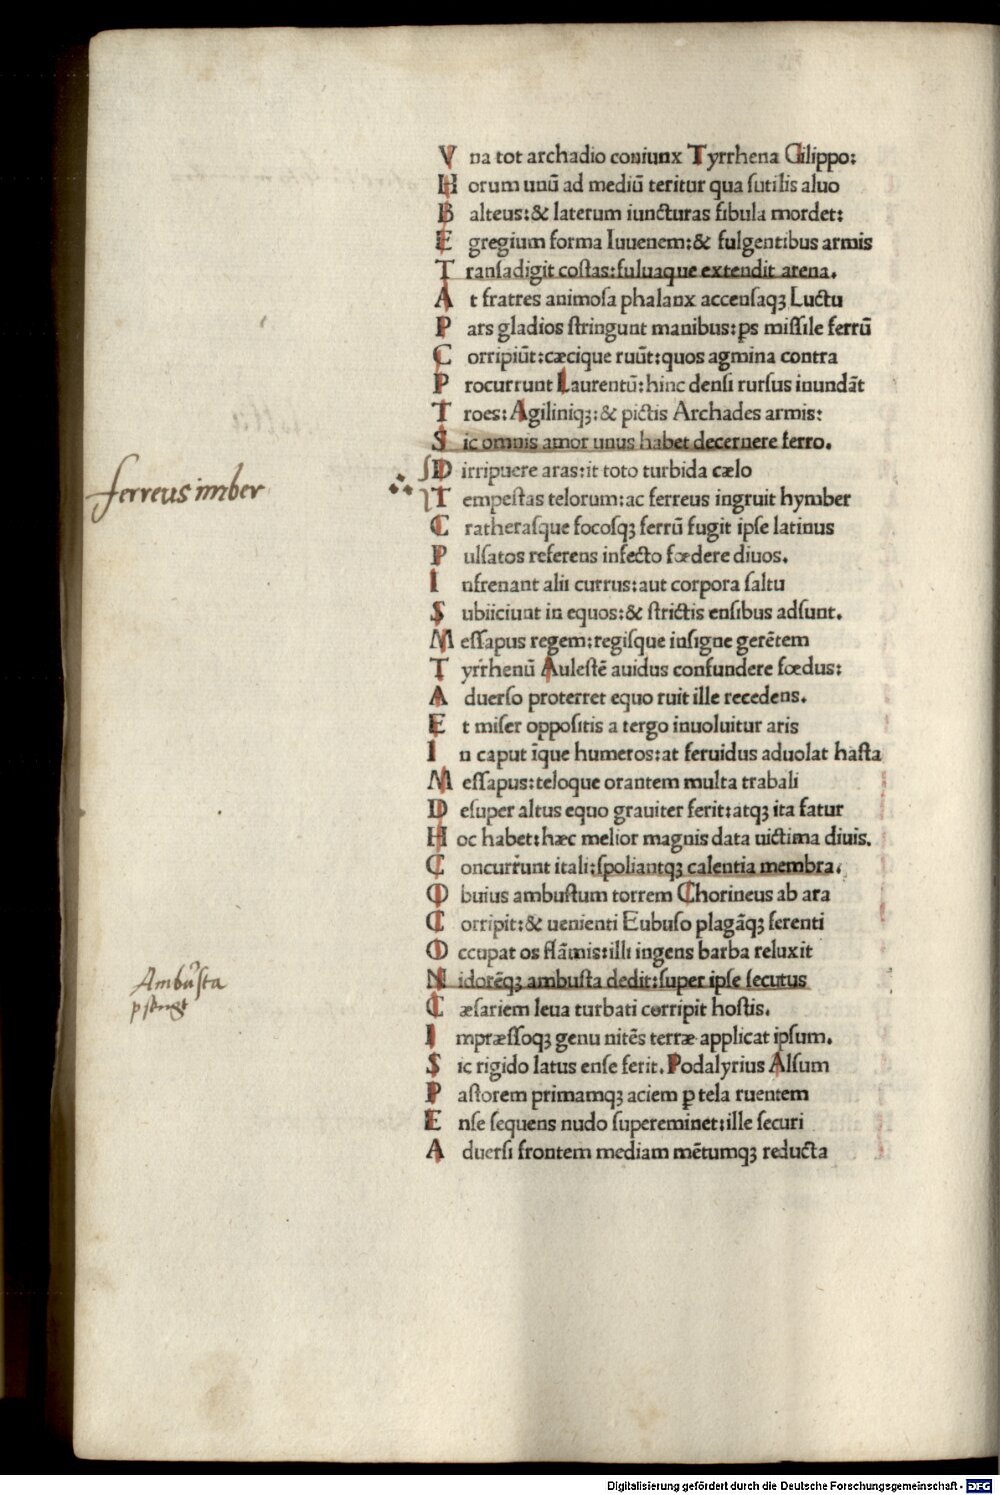 V na tot archadio coniunx Tyrrhena Gilippo:
H orum unũ ad mediũ teritur qua ſutilis aluo
B alteus:& laterum iuncturas fibula mordet:
E gregium forma Iuuenem:& fulgentibus armis
T ranſadigit coſtas:fuluaque extendit arena.
A t fratres animoſa phalanx accenſaqꝫ Luctu
P ars gladios ſtringunt manibus:ps miſſile ferrũ
C orripiũt:cæcique ruũt:quos agmina contra
P rocurrunt Laurentũ:hinc denſi rurſus inundãt
T roes:Agiliniqꝫ:& pictis Archades armis:
S ic omnis amor unus habet decernere ferro.
D irripuere aras:it toto turbida cælo
ferreus imber
T empeſtas telorum:ac ferreus ingruit hymber
C ratheraſque focoſqꝫ ferrũ fugit ipſe latinus
P ulſatos referens infecto fœdere diuos.
I nfrenant alii currus:aut corpora ſaltu
S ubiiciunt in equos:& ſtrictis enſibus adſunt.
M eſſapus regem:regiſque inſigne gerẽtem
T yrrhenũ Auleſtẽ auidus confundere fœdus:
A duerſo proterret equo ruit ille recedens.
E t miſer oppoſitis a tergo inuoluitur aris
I n caput ĩque humeros:at feruidus aduolat haſta
M eſſapus:teloque orantem multa trabali
D eſuper altus equo grauiter ferit:atqꝫ ita fatur
H oc habet:hæc melior magnis data uictima diuis.
C oncurrunt itali:ſpoliantqꝫ calentia membra.
O buius ambuſtum torrem Chorineus ab ara
C orripit:& uenienti Eubuſo plagãqꝫ ferenti
O ccupat os flãmis:illi ingens barba reluxit
Ambuſta
N idorẽqꝫ ambuſta dedit:ſuper ipſe ſecutus
C æſariem leua turbati corripit hoſtis.
I mpræſſoqꝫ genu nitẽs terræ applicat ipſum.
S ic rigido latus enſe ferit.Podalyrius Alſum
P aſtorem primamqꝫ aciem ꝑ tela ruentem
E nſe ſequens nudo ſupereminet:ille ſecuri
A duerſi frontem mediam mẽtumqꝫ reducta
Digitalisierung gefördert durch die Deutsche Forschungsgemeinschaft - DFG